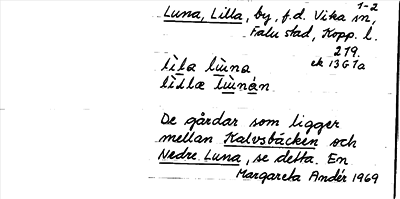 1-2
Luna, Lilla, by, f.d. Vika sn,
Falu stad, Kopp. l.
219.
ek 13G1a
lìla lùna
lìdlæ lùnán
De gårdar som ligger
mellan Kalvsbäcken och
Nedre Luna, se detta. En
Margareta Andér 1969